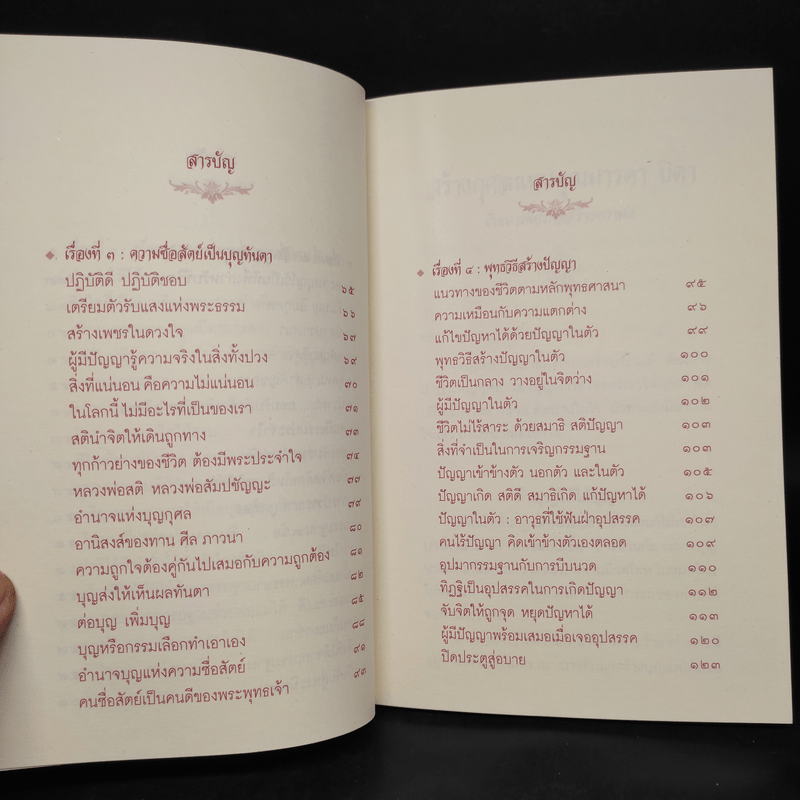 สารบัญ
เรื่องที่ ๓ : ความซื่อสัตย์เป็นบุญทันตา
ปฏิบัติดี ปฏิบัติชอบ ๖๕
เตรียมตัวรับแสงแห่งพระธรรม ๖๖
สร้างเพชรในดวงใจ ๖๗
ผู้มีปัญญารู้ความจริงในสิ่งทั้งปวง ๖๙
สิ่งที่แน่นอน คือความไม่แน่นอน ๗๐
ในโลกนี้ ไม่มีอะไรที่เป็นของเรา ๗๑
สตินำจิตให้เดินถูกทาง ๗๓
ทุกก้าวย่างของชีวิต ต้องมีพระประจำใจ ๗๔
หลวงพ่อสติ หลวงพ่อสัมปชัญญะ ๗๗
อำนาจแห่งบุญกุศล ๗๙
อานิสงส์ของทาน ศีล ภาวนา ๘๐
ความถูกใจต้องคู่กันไปเสมอกับความถูกต้อง ๘๑
บุญส่งให้เห็นผลทันตา ๘๒
ต่อบุญ เพิ่มบุญ ๘๕
บุญหรือกรรมเลือกทำเอาเอง ๘๘
อำนาจบุญแห่งความซื่อสัตย์ ๙๑
คนซื่อสัตย์เป็นคนดีของพระพุทธเจ้า ๙๓
สารบัญ
เรื่องที่ ๔ : พุทธวิธีสร้างปัญญา
แนวทางของชีวิตตามหลักพุทธศาสนา ๙๕
ความเหมือนกับความแตกต่าง ๙๖
แก้ไขปัญหาได้ด้วยปัญญาในตัว ๙๙
พุทธวิธีสร้างปัญญาในตัว ๑๐๐
ชีวิตเป็นกลาง วางอยู่ในจิตว่าง ๑๐๑
ผู้มีปัญญาในตัว ๑๐๒
ชีวิตไม่ไร้สาระ ด้วยสมาธิ สติปัญญา ๑๐๓
สิ่งที่จำเป็นในการเจริญกรรมฐาน ๑๐๓
ปัญญาเข้าข้างตัว นอกตัว และในตัว ๑๐๕
ปัญญาเกิด สติดี สมาธิเกิด แก้ปัญหาได้ ๑๐๖
ปัญญาในตัว : อาวุธที่ใช้ฟันฝ่าอุปสรรค ๑๐๗
คนไร้ปัญญา คิดเข้าข้างตัวเองตลอด ๑๐๙
อุปมากรรมฐานกับการบีบนวด ๑๑๐
ทิฏฐิเป็นอุปสรรคในการเกิดปัญญา ๑๑๒
จับจิตให้ถูกจุด หยุดปัญหาได้ ๑๑๓
ผู้มีปัญญาพร้อมเสมอเมื่อเจออุปสรรค ๑๒๐
ปิดประตูสู่อบาย ๑๒๓